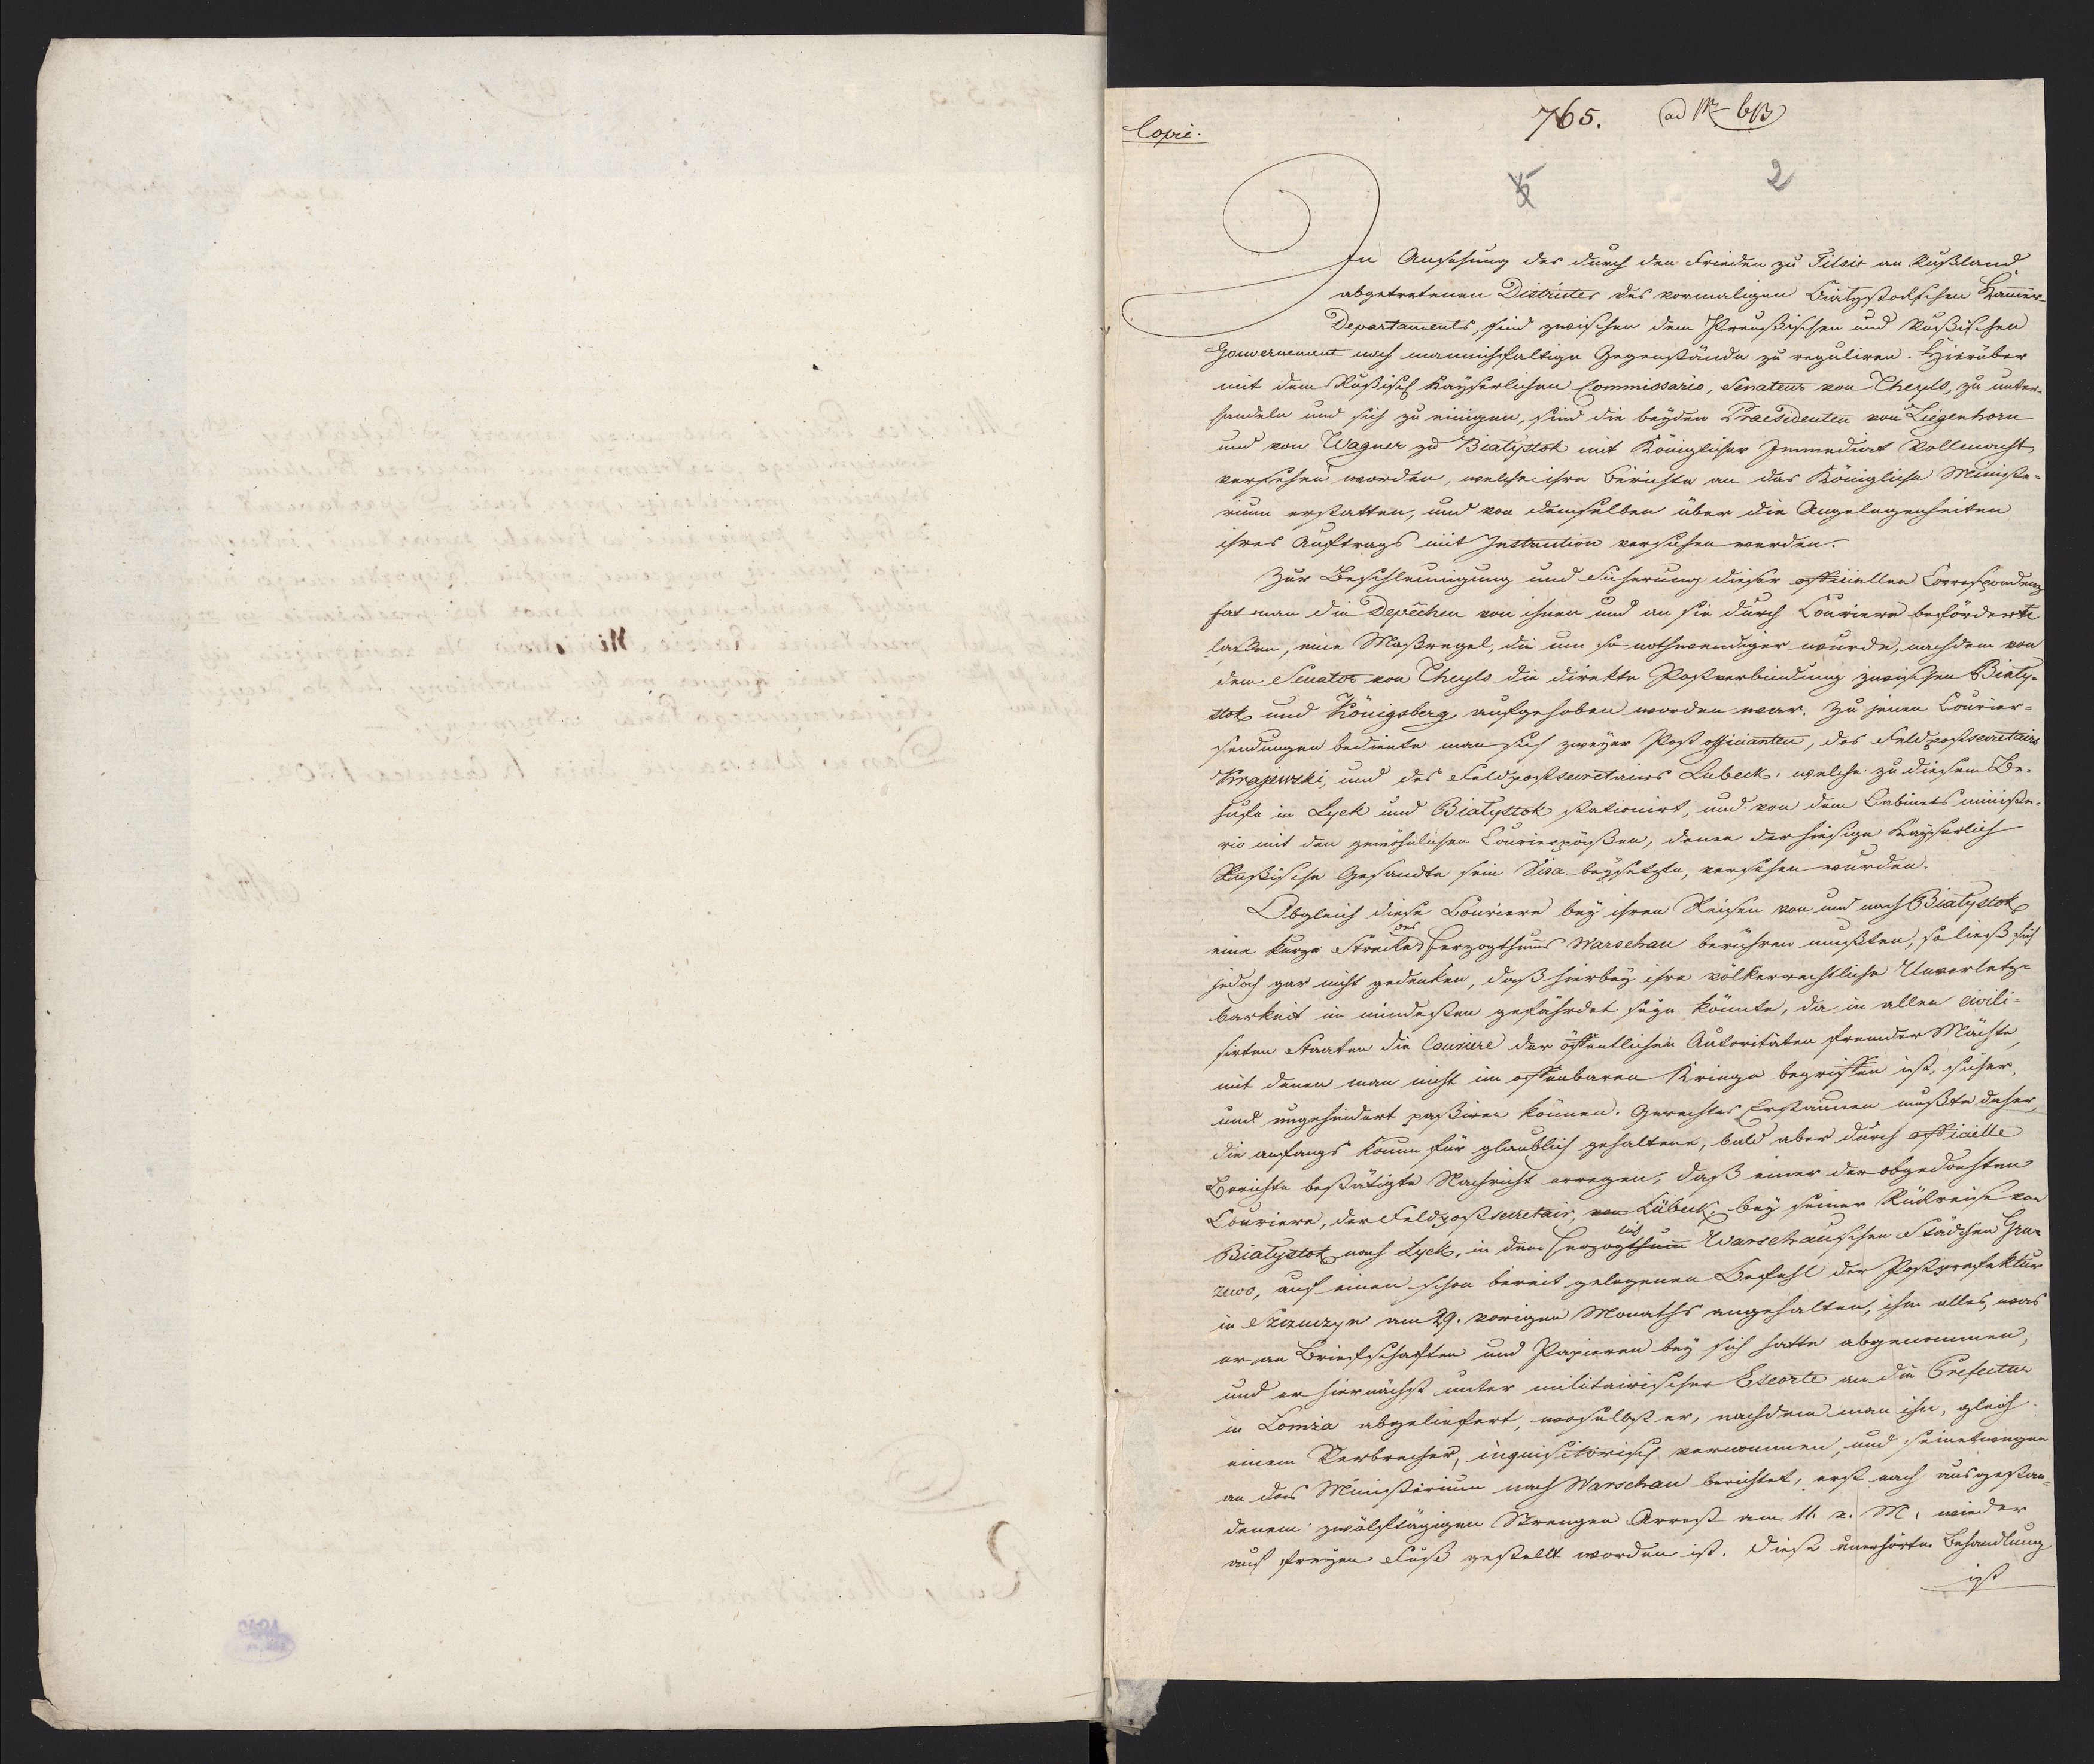 Copie.
765.
2
In Ansehung des durch den Frieden zu Tilsit an Rußland
abgetretenen Districtes des vormaligen Bialystockschen Kammer-
Departaments, sind zwischen dem Preußischen und Rußischen
Gouvernement noch mannichfaltige Gegenstände zu reguliren. Hierüber
mit dem Rußisch Kayserlichen Commissario, Senateur von Theyls, zu unter-
handeln und sich zu einigen, sind die beyden Praesidenten von Ziegenhorn
und von Wagner zu Bialystok mit Königlicher Immediat Vollmacht
versehen worden, welche ihre Berichte an das Königliche Ministe-
rium erstatten, und von demselben über die Angelegenheiten
ihres Auftrags mit Instruction versehen werden.
Zur Beschleunigung und Sicherung dieser officiellen Correspondenz
hat man die Depêchen von ihnen und an sie durch Couriere befördern
laßen, eine Maßregel, die um so nothwendiger wurde, nachdem von
dem Senator von Theyls die direkte Postverbindung zwischen Bialy-
stok und Königsberg aufgehoben worden war. Zu jenen Courier-
sendungen bediente man sich zweyer Post officianten, des Feldpostsecretairs
Krajewski, und des Feldpostsecretairs Lubeck, welche zu diesem Be-
hufe in Lyck und Bialystok stationirt, und von dem Cabinets ministe-
rio mit den gewöhnlichen Courierpäßen, denen der hiesige Kayserlich
Rußische Gesandte sein Visa beysetzte, versehen wurden.
Obgleich diese Couriere bey ihren Reisen von und nach Bialystok
eine kurze Strecke des Herzogthums Warschau berühren mußten, so ließ sich
jedoch gar nicht gedenken, daß hierbey ihre völkerrechtliche Unverletz-
barkeit im mindesten gefährdet seyn könnte, da in allen civili-
sirten Staaten die Couriere der öffentlichen Autoritäten fremder Mächte,
mit denen man nicht im offenbaren Kriege begriffen ist, sicher,
und ungehindert paßiren können. Gerechtes Erstaunen mußte daher,
die anfangs kaum für glaublich gehaltene, bald aber durch officielle
Berichte bestätigte Nachricht erregen, daß einer der obgedachten
Couriere, der Feldpostsecretair, von Lübeck, bey seiner Rückreise von
Bialystok nach Lyck, in dem Herzogthum lich Warschauischen Städchen Gra-
zewo, auf einen schon bereit gelegenen Befehl der Postprefektur
in Szczuczyn am 29. vorigen Monaths angehalten, ihm alles, was
er an Briefschaften und Papieren bey sich hatte abgenommen,
und er hiernächst unter militairischer Escorte an die Prefectur
in Lomza abgeliefert, woselbst er, nachdem man ihn, gleich
einem Verbrecher, inquisitorisch vernommen, und seinetwegen
an das Ministerium nach Warschau berichtet, erst nach ausgestan-
denem zwölftägigen Strengen Arrest am 11. v. M. wieder
auf freyen Fuß gestellt worden ist. Diese unerhörte Behandlung
ist